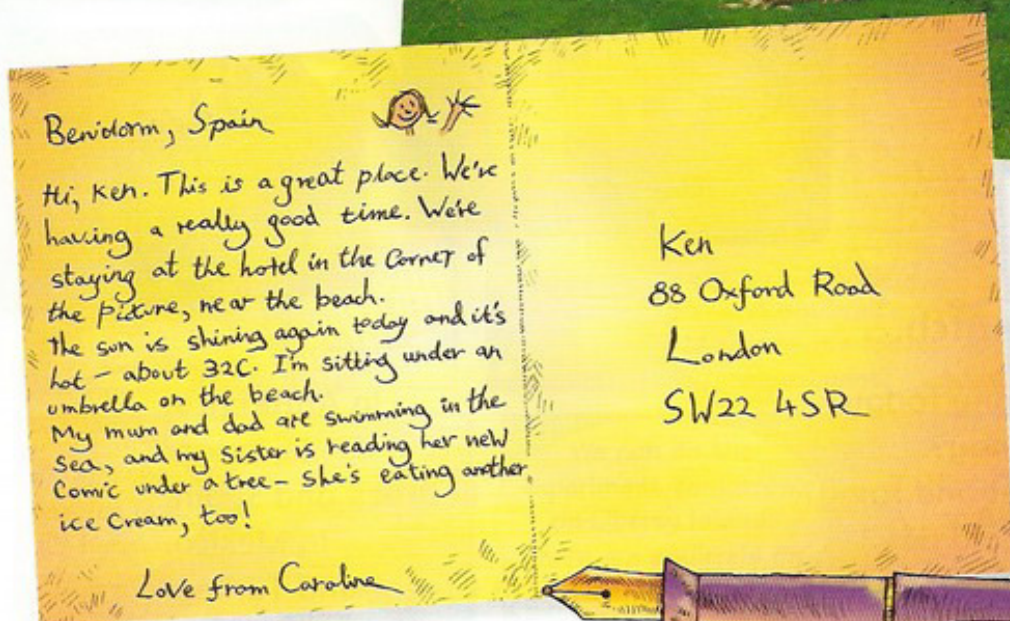 Benidorm, Spain
Hi, Ken. This is a great place. We're
having a really good time. We're
staying at the hotel in the corner of
the picture, near the beach.
The sun is shining again today and it's
hot - about 32C. I'm sitting under an
umbrella on the beach.
My mum and dad are swimming in the
sea, and my sister is reading her new
comic under a tree - she's eating another
ice cream, too!
Love from Caroline
Ken
88 Oxford Road
London
SW22 4SR